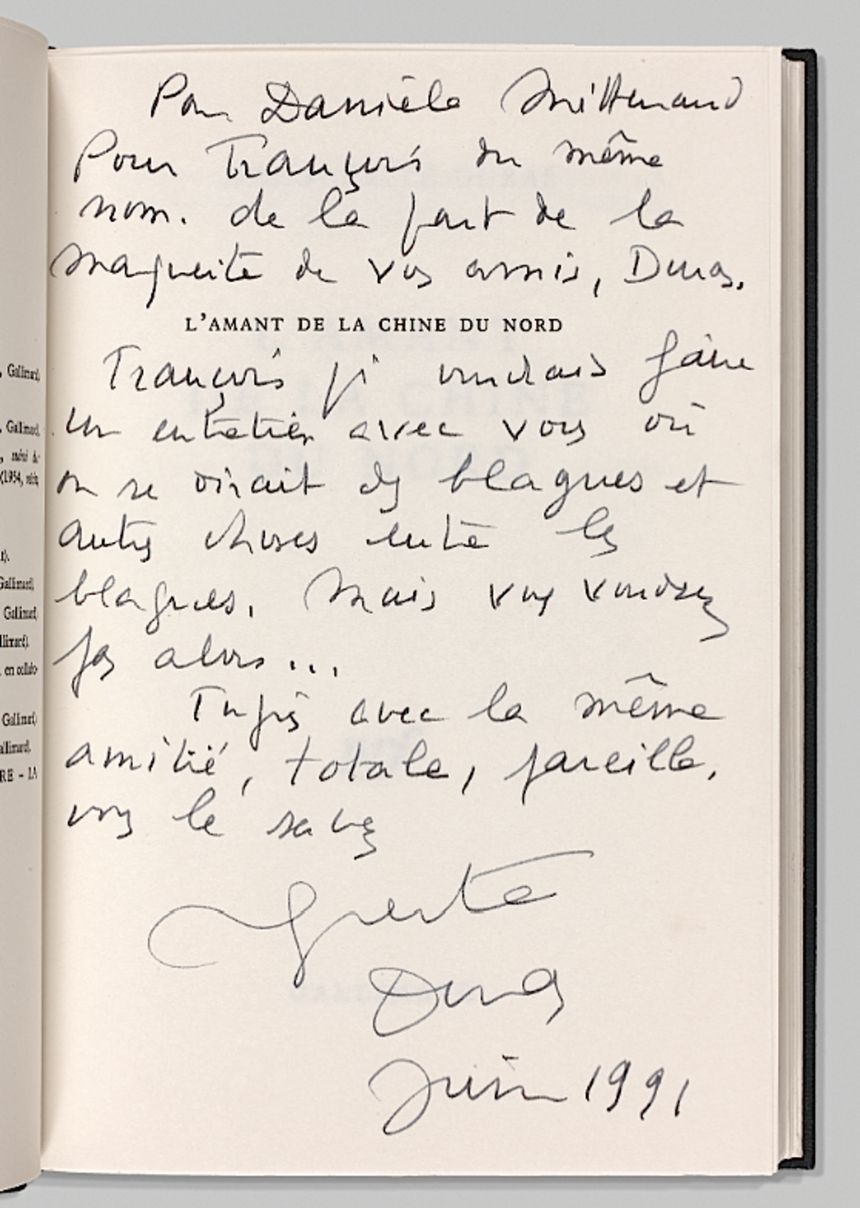 Pour Danièle Mitterrand
Pour François du même
nom. de la part de la
Marguerite de vos amis, Duras.
L'AMANT DE LA CHINE DU NORD
François je voudrais faire
un entretien avec vous où
on se dirait des blagues et
autres choses entre les
blagues. Mais vous voudrez
pas alors...
avec la même
amitié, totale, pareille,
vous le savez
Duras
Juin 1991
Gallimard,
Gallimard,
(1954,
Gallimard,
Gallimard,
Gallimard,
RE – LA